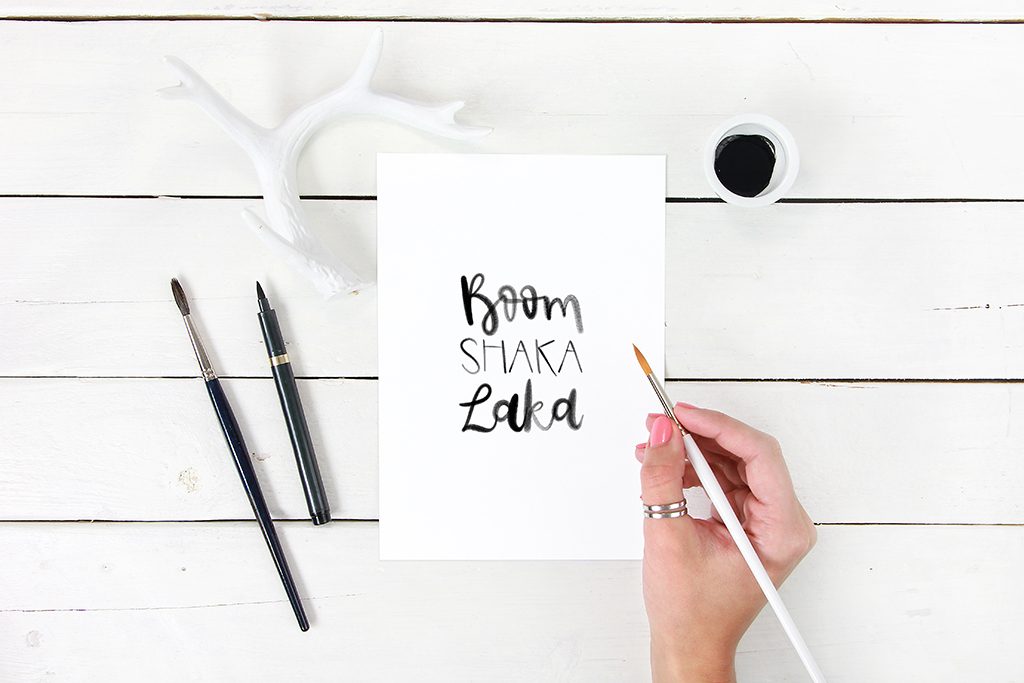 Boom
SHAKA
Laka